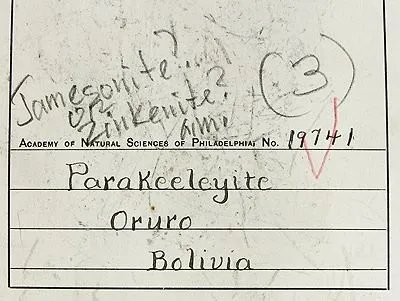 Jamesonite?..
or
Zinkenite?
(3)
ACADEMY OF NATURAL SCIENCES OF PHILADELPHIA, NO. 19741
Parakeeleyite
Oruro
Bolivia